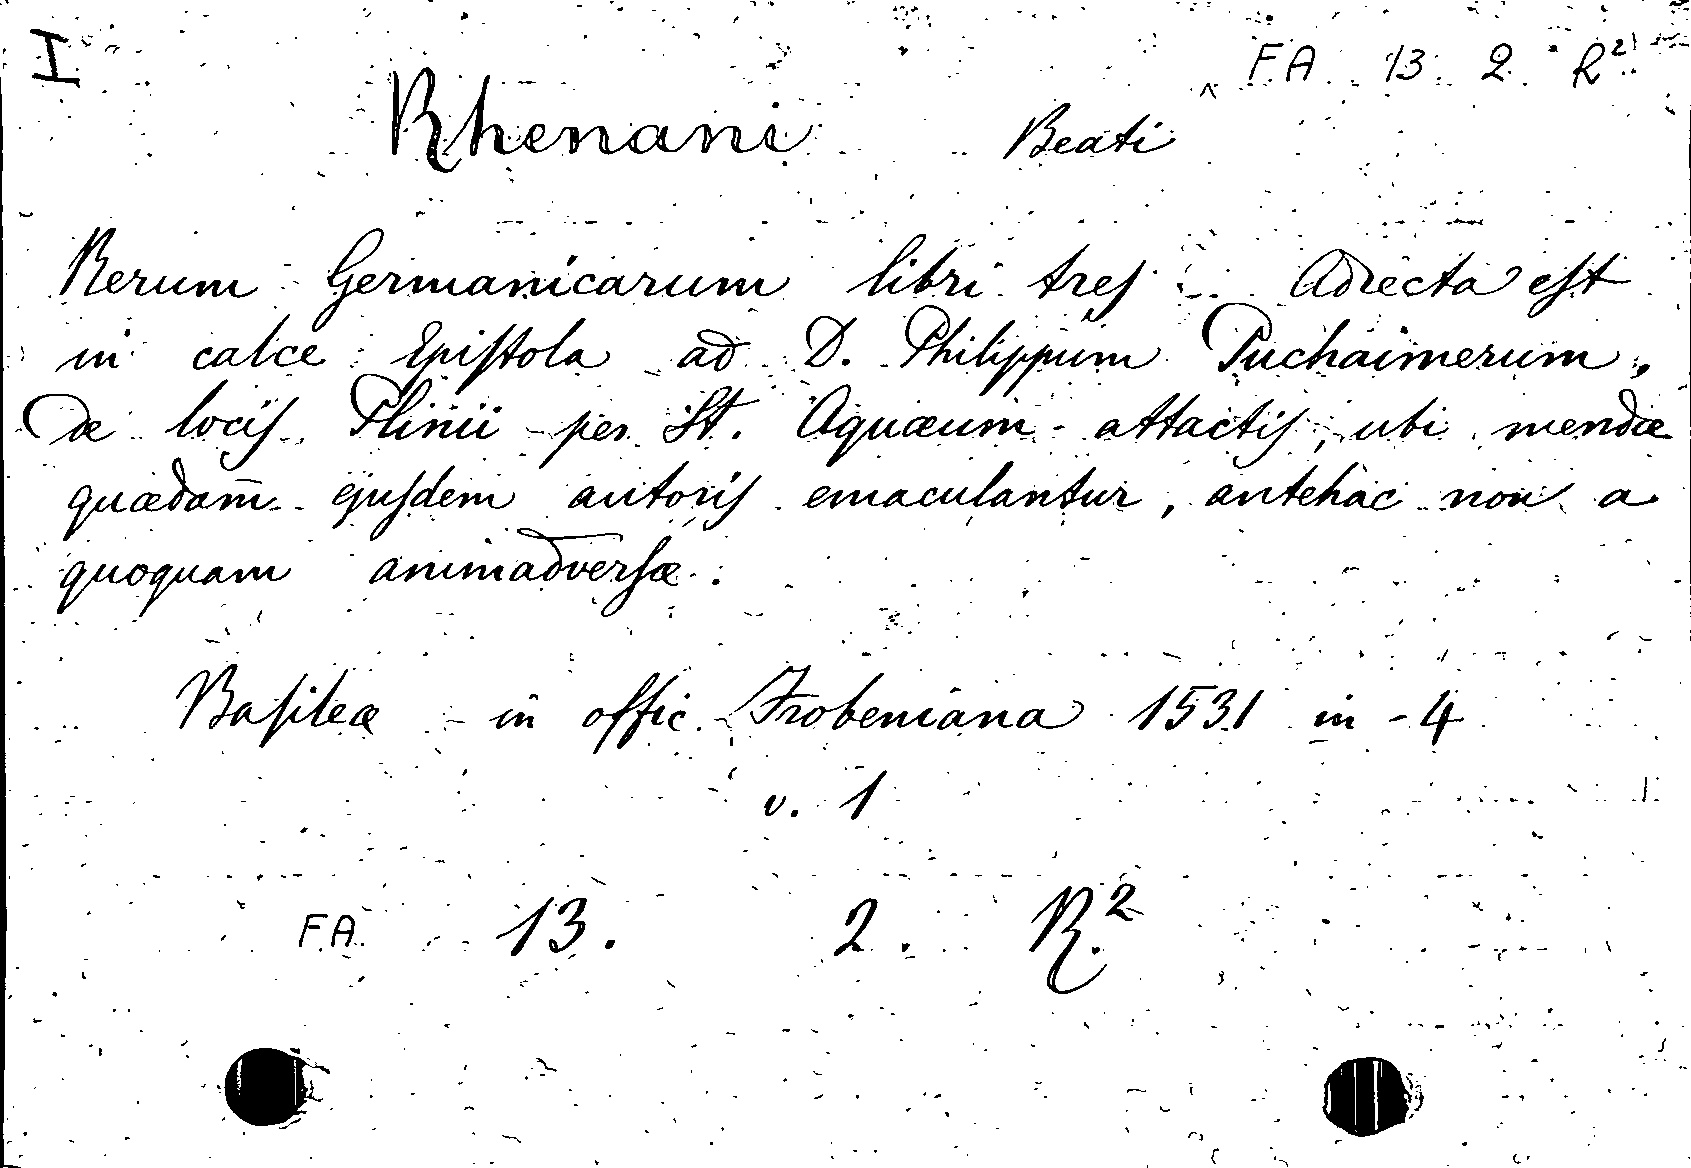 I
FA 13 2 R²
Rhenani Beati
Rerum Germanicarum libri tres. Adiecta est
in calce Epistola ad D. Philippum Puchaimerum,
de locis Plinii per St. Aquæum attactis, ubi mendæ
quædam ejusdem autoris emaculantur, antehac non a
quoquam animadversæ.
Basileæ - in offic. Frobeniana 1531 in-4
v. 1
F.A. 13. 2. R.²